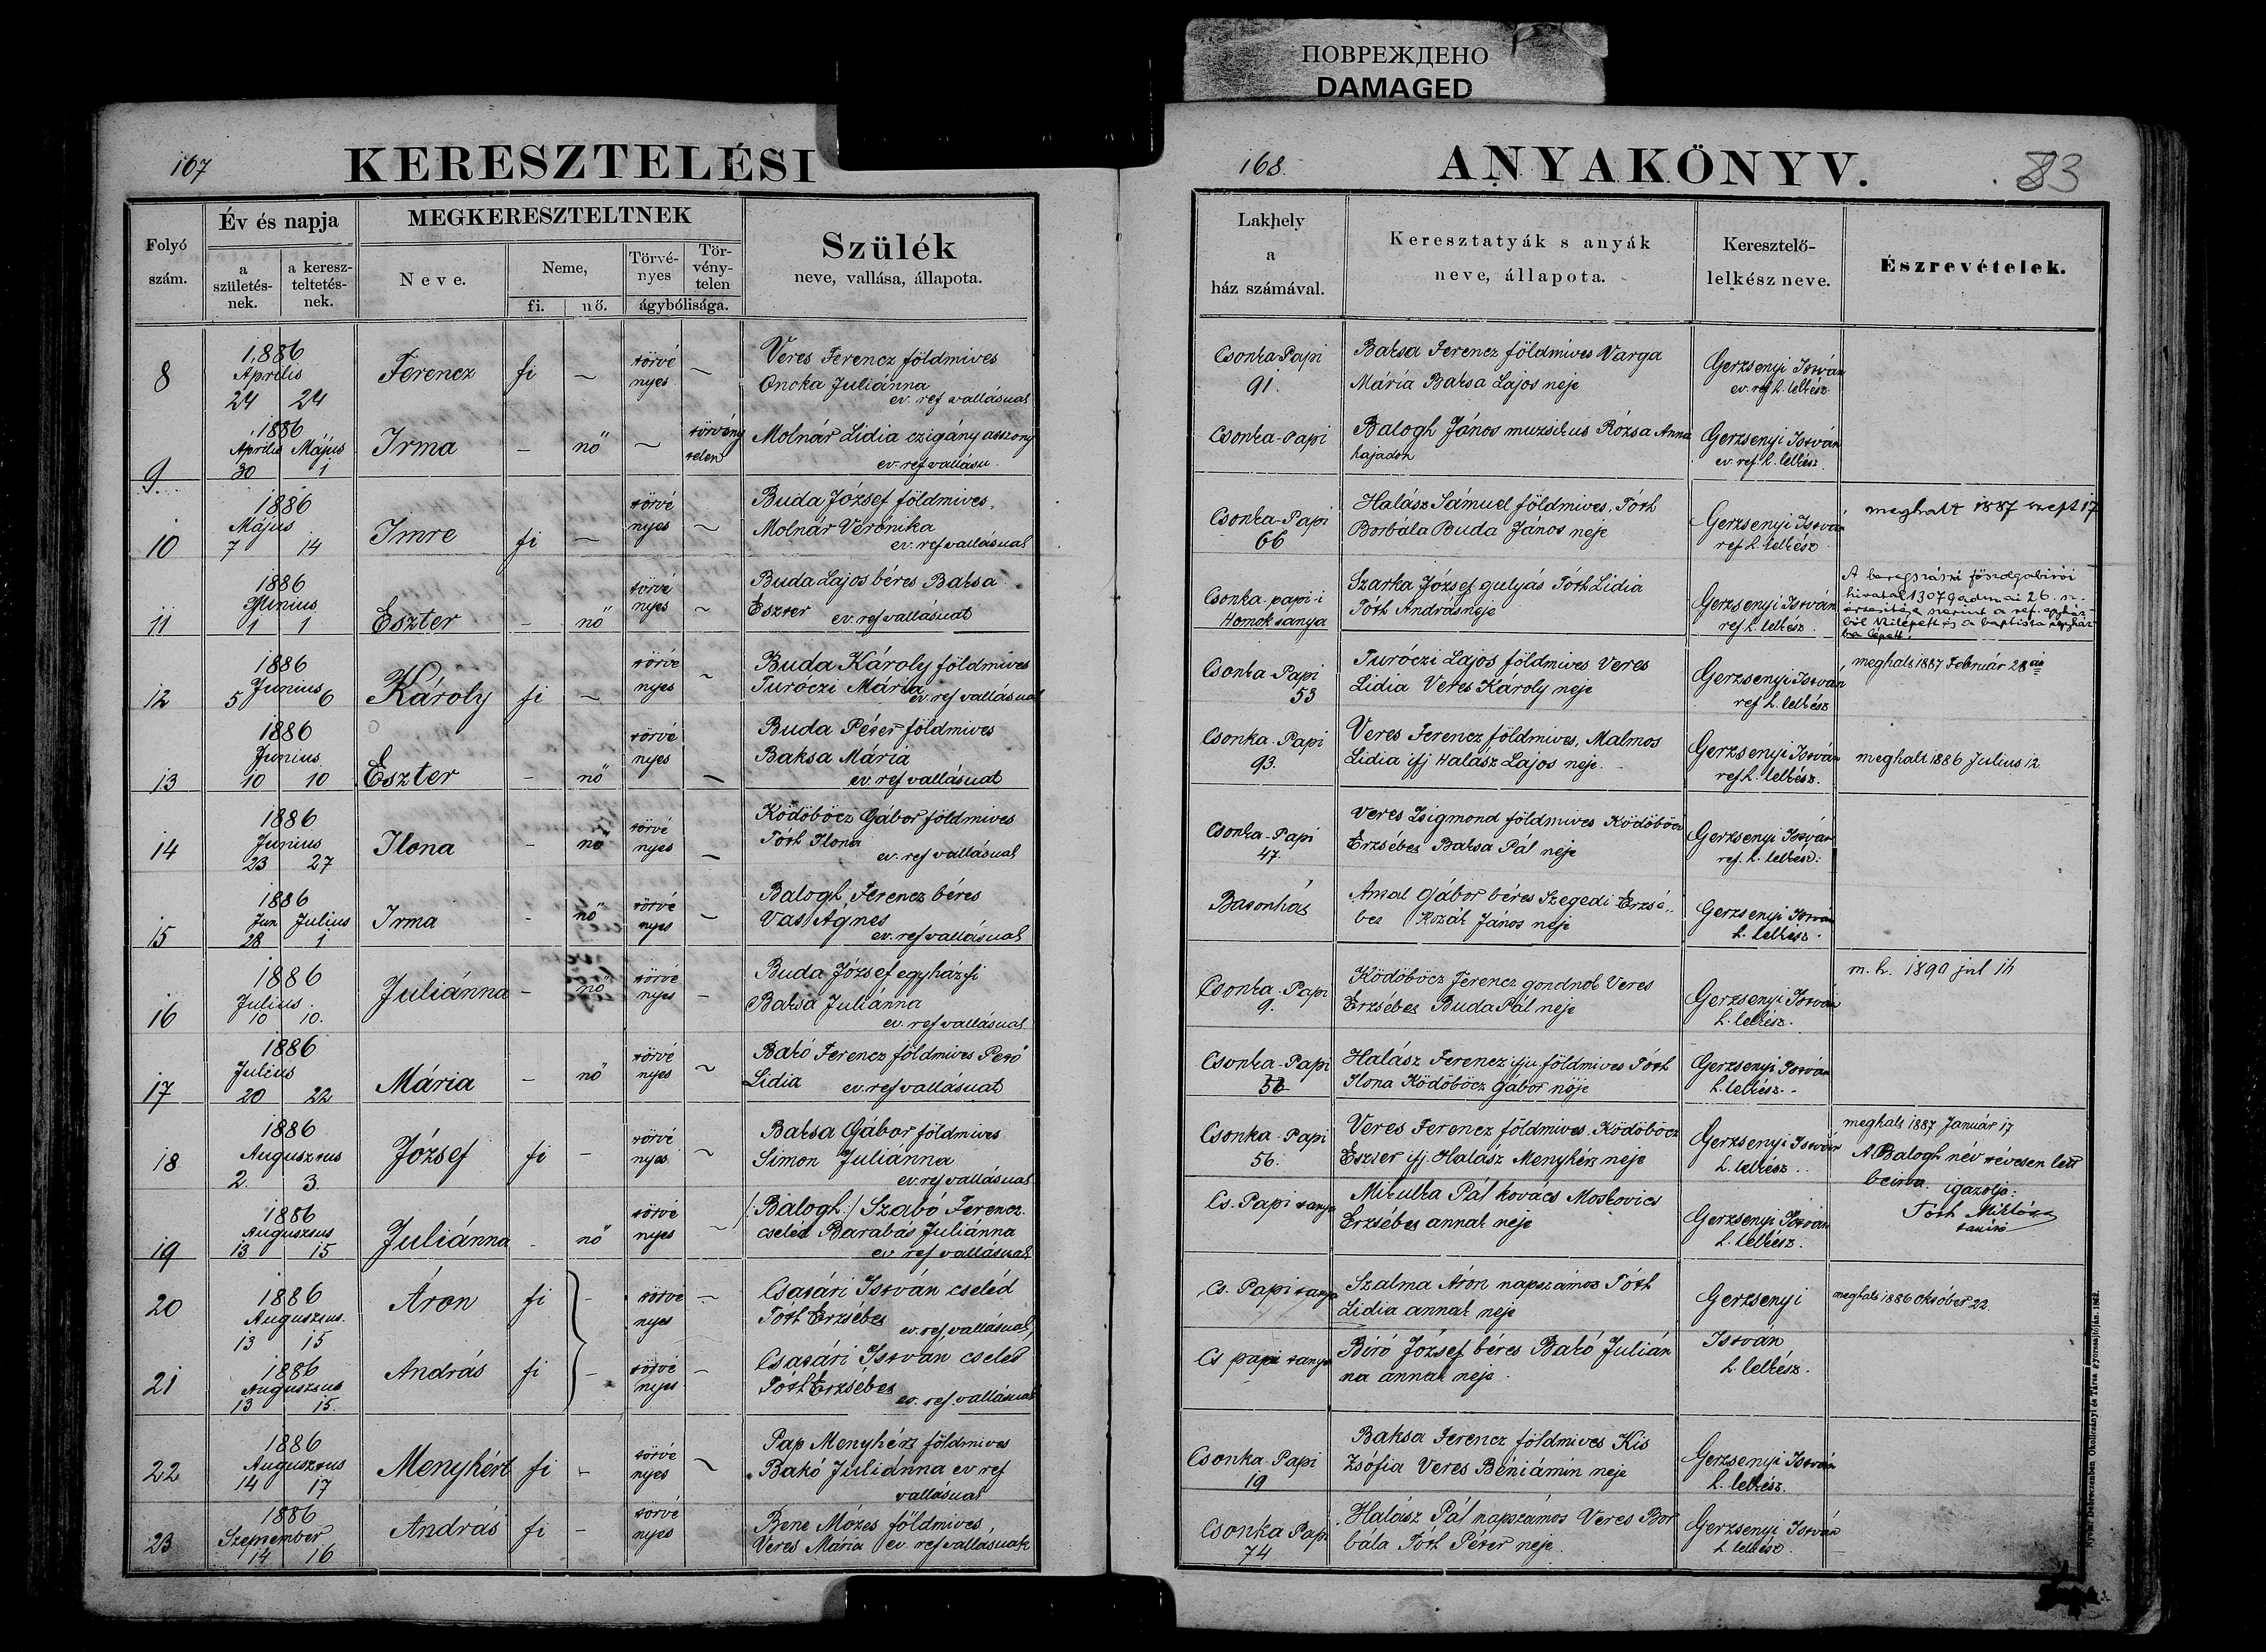 ПОВРЕЖДЕНО
DAMAGED
167
KERESZTELÉSI
Folyó
szám.
Év és napja
a
születés-
nek.
a keresz-
teltetés-
nek.
MEGKERESZTELTNEK
Neve.
Neme,
fi.
nő.
Törvé-
nyes
Tör-
vény-
telen
ágybólisága.
Szülék
neve, vallása, állapota.
8
1886
Aprilis
24 24
Ferencz
fi
törvé
nyes
Veres Ferencz földmives
Oncka Juliánna
ev. ref vallásuak
9
1886
Aprilis Május
30 1
Irma
nő
törvény
telen
Molnár Lidia czigány asszony
ev. ref vallásu
10
1886
Május
7 14
Imre
fi
törvé
nyes
Buda József földmives,
Molnár Verónika
ev. ref vallásuak
11
1886
Junius
1 1
Eszter
nő
törvé
nyes
Buda Lajos béres Baksa
Eszter ev. ref vallásuak
12
1886
Junius
5 6
Károly
fi
törvé
nyes
Buda Károly földmives
Turóczi Mária
ev. ref vallásuak
13
1886
Junius
10 10
Eszter
nő
törvé
nyes
Buda Péter földmives
Baksa Mária
ev. ref vallásuak
14
1886
Junius
23 27
Ilona
nő
törvé
nyes
Ködöböcz Gábor földmives
Tóth Ilona
ev. ref vallásuak
15
1886
Jun Julius
28 1
Irma
nő
törvé
nyes
Balogh Ferencz béres
Vas Agnes
ev. ref vallásuak
16
1886
Julius
10 10.
Juliánna
nő
törvé
nyes
Buda József egyházfi
Baksa Juliánna
ev. ref vallásuak
17
1886
Julius
20 22
Mária
nő
törvé
nyes
Bakó Ferencz földmives Pető
Lidia ev. ref vallásuak
18
1886
Augusztus
2. 3.
József
fi
törvé
nyes
Baksa Gábor földmives
Simon Juliánna
ev. ref vallásuak
19
1886
Augusztus
13 15
Juliánna
nő
törvé
nyes
/:Balogh:/ Szabó Ferencz
cseléd Barabás Juliánna
ev ref vallásuak
20
1886
Augusztus.
13 15
Áron
fi
törvé
nyes
Csatári István cseléd
Tóth Erzsébet
ev. ref. vallásuak
21
1886
Augusztus
13 15.
András
fi
törvé
nyes
Csatári István cseléd
Tóth Erzsébet
ev. ref. vallásuak
22
1886
Augusztus
14 17
Menyhért
fi
törvé
nyes
Pap Menyhért földmives
Bakó Juliánna ev ref
vallásuak
23
1886
Szeptember
14 16
András
fi
törvé
nyes
Bene Mózes földmives
Veres Mária ev. ref vallásuak
168.
ANYAKÖNYV.
83
Lakhely
a
ház számával.
Keresztatyák s anyák
neve, állapota.
Keresztelő-
lelkész neve.
Észrevételek.
Csonka-Papi
91.
Baksa Ferencz földmives Varga
Mária Baksa Lajos neje
Gerzsenyi István
ev. ref h. lelkész
Csonka-Papi
Balogh János muzsikus Rózsa Anna
hajadon
Gerzsenyi István
ev. ref. h. lelkész.
Csonka-Papi
66
Halász Sámuel földmives, Tóth
Borbála Buda János neje
Gerzsenyi István
ref h. lelkész
meghalt 1887 szept 17
Csonka-papi-i
Homok tanya
Szarka József gulyás Tóth Lidia
Tóth András neje
Gerzsenyi István
ref h. lelkész
A beregszászi főszolgabirói
hivatal
értesitése szerint a ref. egyház-
ból kilépett és a baptista egyház-
ba lépett.
Csonka Papi
53
Turóczi Lajos földmives Veres
Lidia Veres Károly neje
Gerzsenyi István
ref h. lelkész
meghalt 1887 Február 28án
Csonka-Papi
93.
Veres Ferencz földmives, Malmos
Lidia ifj Halász Lajos neje.
Gerzsenyi István
ref h. lelkész.
meghalt 1886 Julius 12
Csonka-Papi
47.
Veres Zsigmond földmives Ködöböcz
Erzsébet Baksa Pál neje
Gerzsenyi István
ref. h. lelkész.
Antal Gábor béres Szegedi Erzsé-
bet Kozák János neje
Gerzsenyi István
h. lelkész.
Csonka-Papi
9.
Ködöböcz Ferencz gondnok Veres
Erzsébet Buda Pál neje
Gerzsenyi István
h. lelkész.
m. h. 1890 jul 16
Csonka-Papi
56
Halász Ferencz ifju földmives Tóth
Ilona Ködöböcz Gábor nője
Gerzsenyi István
h. lelkész.
Csonka-Papi
56.
Veres Ferencz földmives. Ködöböcz
Eszter ifj. Halász Menyhért neje
Gerzsenyi István
h. lelkész.
meghalt 1887 Január 17
Cs. Papi tanya
Mikulka Pál kovács Moskovics
Erzsébet annak neje
Gerzsenyi István
h. lelkész.
A Balogh név tévesen lett
beirva. igazolja:
Tóth Miklós
tanitó
Cs. Papi tanya
Szalma Áron napszámos Tóth
Lidia annak neje
Gerzsenyi
meghalt 1886 Október 22.
Cs papi tanya
Biró József béres Bakó Julián
na annak neje.
István
h. lelkész.
Csonka-Papi
19
Baksa Ferencz földmives Kis
Zsófia Veres Béniámin neje
Gerzsenyi István
h. lelkész.
Csonka Papi
74
Halász Pál napszámos Veres Bor
bála Tóth Péter neje.
Gerzsenyi István
h. lelkész.